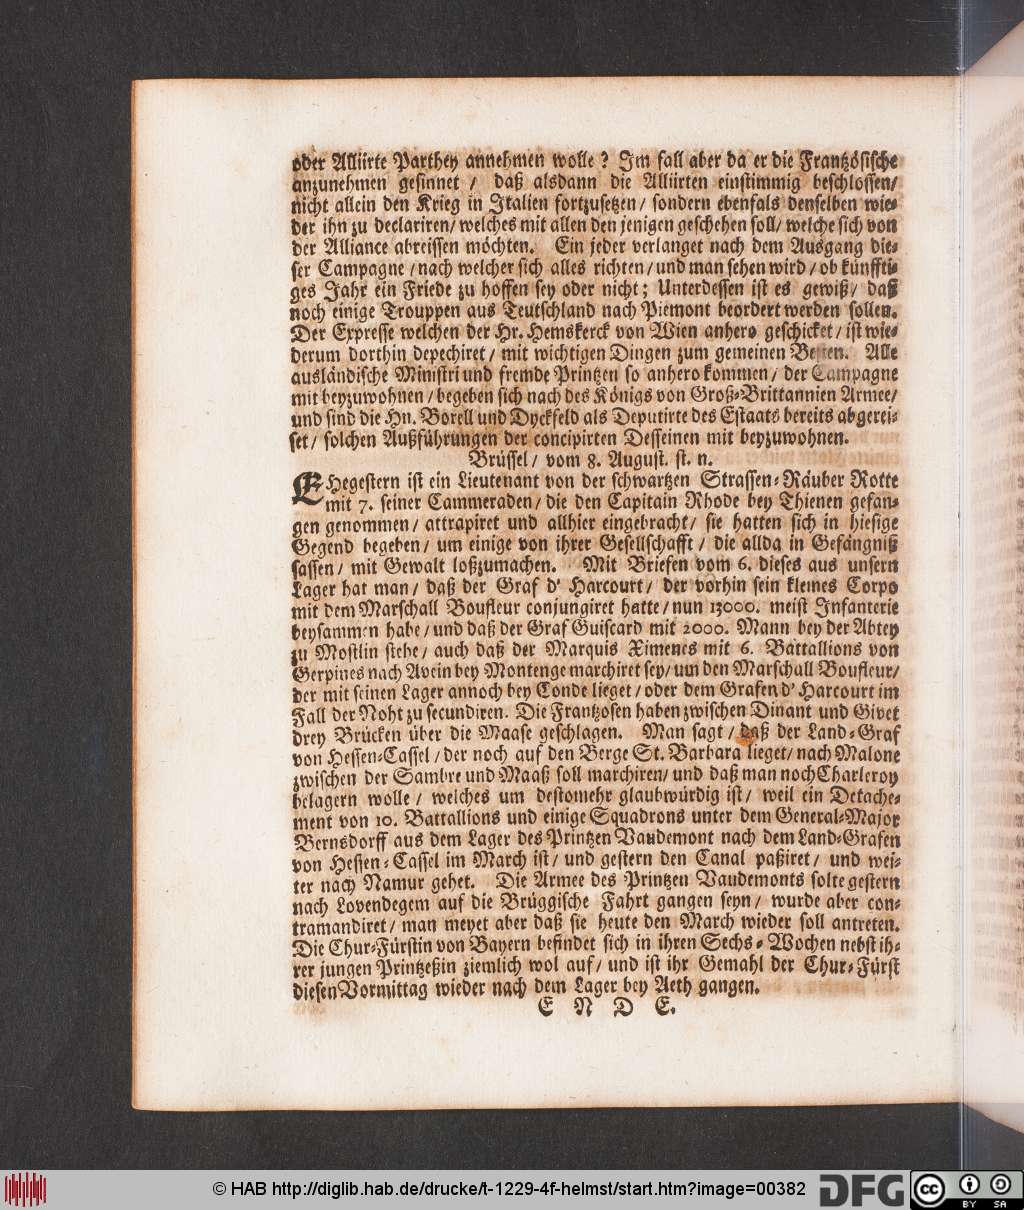 oder Alliirte Parthey annehmen wolle? Im fall aber da er die Frantzösische
anzunehmen gesinnet / daß alsdann die Alliirten einstimmig beschlossen/
nicht allein den Krieg in Italien fortzusetzen / sondern ebenfals denselben wie-
der ihn zu declariren/ welches mit allen den jenigen geschehen soll/ welche sich von
der Alliance abreissen möchten. Ein jeder verlanget nach dem Ausgang die-
ser Campagne / nach welcher sich alles richten / und man sehen wird / ob künffti-
ges Jahr ein Friede zu hoffen sey oder nicht; Unterdessen ist es gewiß/ daß
noch einige Trouppen aus Teutschland nach Piemont beordert werden sollen.
Der Expresse welchen der Hr. Hemskerck von Wien anhero geschicket / ist wie-
derum dorthin depechiret / mit wichtigen Dingen zum gemeinen Besten. Alle
ausländische Ministri und fremde Printzen so anhero kommen / der Campagne
mit beyzuwohnen / begeben sich nach des Königs von Groß-Brittannien Armee/
und sind die Hn. Borell und Dyckfeld als Deputirte des Estaats bereits abgerei-
set / solchen Außführungen der concipirten Desseinen mit beyzuwohnen.
Brüssel / vom 8. August. st. n.
EHegestern ist ein Lieutenant von der schwartzen Strassen-Räuber Rotte
mit 7. seiner Cammeraden / die den Capitain Rhode bey Thienen gefan-
gen genommen / attrapiret und allhier eingebracht / sie hatten sich in hiesige
Gegend begeben / um einige von ihrer Gesellschafft / die allda in Gefängniß
sassen / mit Gewalt loßzumachen. Mit Briefen vom 6. dieses aus unserm
Lager hat man / daß der Graf d' Harcourt / der vorhin sein kleines Corpo
mit dem Marschall Boufleur conjungiret hatte / nun 13000. meist Infanterie
beysammen habe / und daß der Graf Guiscard mit 2000. Mann bey der Abtey
zu Mostlin stehe / auch daß der Marquis Ximenes mit 6. Battallions von
Gerpines nach Avein bey Montenge marchiret sey/ um den Marschall Boufleur/
der mit seinen Lager annoch bey Conde lieget / oder dem Grafen d' Harcourt im
Fall der Noht zu secundiren. Die Frantzosen haben zwischen Dinant und Givet
drey Brücken über die Maase geschlagen. Man sagt / daß der Land-Graf
von Hessen-Cassel / der noch auf den Berge St. Barbara lieget / nach Malone
zwischen der Sambre und Maaß soll marchiren / und daß man noch Charleroy
belagern wolle / welches um destomehr glaubwürdig ist / weil ein Detache-
ment von 10. Battallions und einige Squadrons unter dem General-Major
Bernsdorff aus dem Lager des Printzen Vaudemont nach dem Land-Grafen
von Hessen-Cassel im March ist / und gestern den Canal paßiret / und wei-
ter nach Namur gehet. Die Armee des Printzen Vaudemonts solte gestern
nach Lovendegem auf die Brüggische Fahrt gangen seyn / wurde aber con-
tramandiret / man meyet aber daß sie heute den March wieder soll antreten.
Die Chur-Fürstin von Bayern befindet sich in ihren Sechs-Wochen nebst ih-
rer jungen Printzeßin ziemlich wol auf / und ist ihr Gemahl der Chur-Fürst
diesen Vormittag wieder nach dem Lager bey Aeth gangen.
E N D E.
© HAB http://diglib.hab.de/drucke/t-1229-4f-helmst/start.htm?image=00382
DFG
cc BY SA